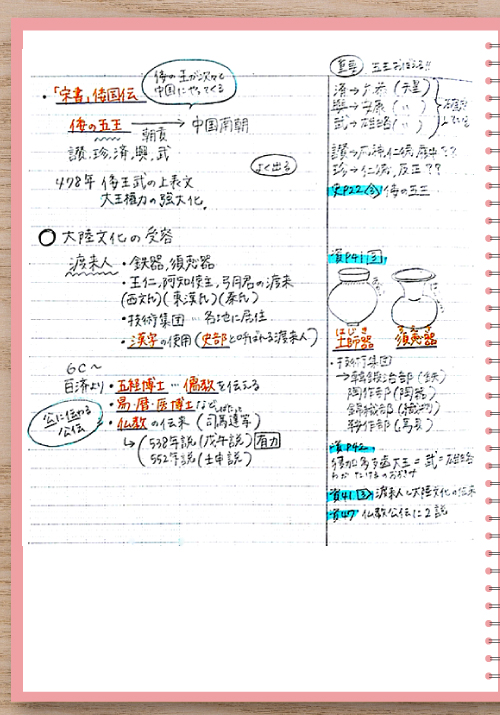 倭の王が次々と
中国にやってくる
・「宋書」倭国伝
倭の五王 → 中国南朝
朝貢
讃、珍、済、興、武
よく出る
478年 倭王武の上表文
大王権力の強大化。
○ 大陸文化の受容
渡来人 ・鉄器、須恵器
・王仁、阿知使主、弓月君の渡来
(西文氏)(東漢氏)(秦氏)
・技術集団…各地に居住
・漢字の使用(史部と呼ばれる渡来人)
6C〜
百済より ・五経博士…儒教を伝える
・易・暦・医博士など
公に伝わる
公伝
・仏教の伝来(司馬達等)
→(538年説(戊午説) 有力
552年説(壬申説)
重要 五王おぼえる!!
済→允恭(天皇)
興→安康(〃)
武→雄略(〃)
讃→応神、仁徳、履中??
珍→仁徳、反正??
史P22 ② 倭の五王
資P41 ③
はじき
土師器
すえき
須恵器
・技術集団
→韓鍛冶部(鉄)
陶作部(陶器)
錦織部(織物)
鞍作部(馬具)
資P42
獲加多支鹵大王=武=雄略
資41 ③ 渡来人と大陸文化の伝来
資47 仏教公伝に2説